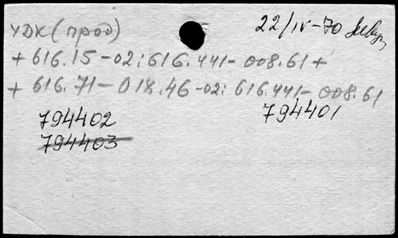 УДК (прод) 22/IV-70
+ 616.15-02:616.441-008.61 +
+ 616.71-018.46-02:616.441-008.61
794402 794401
794403